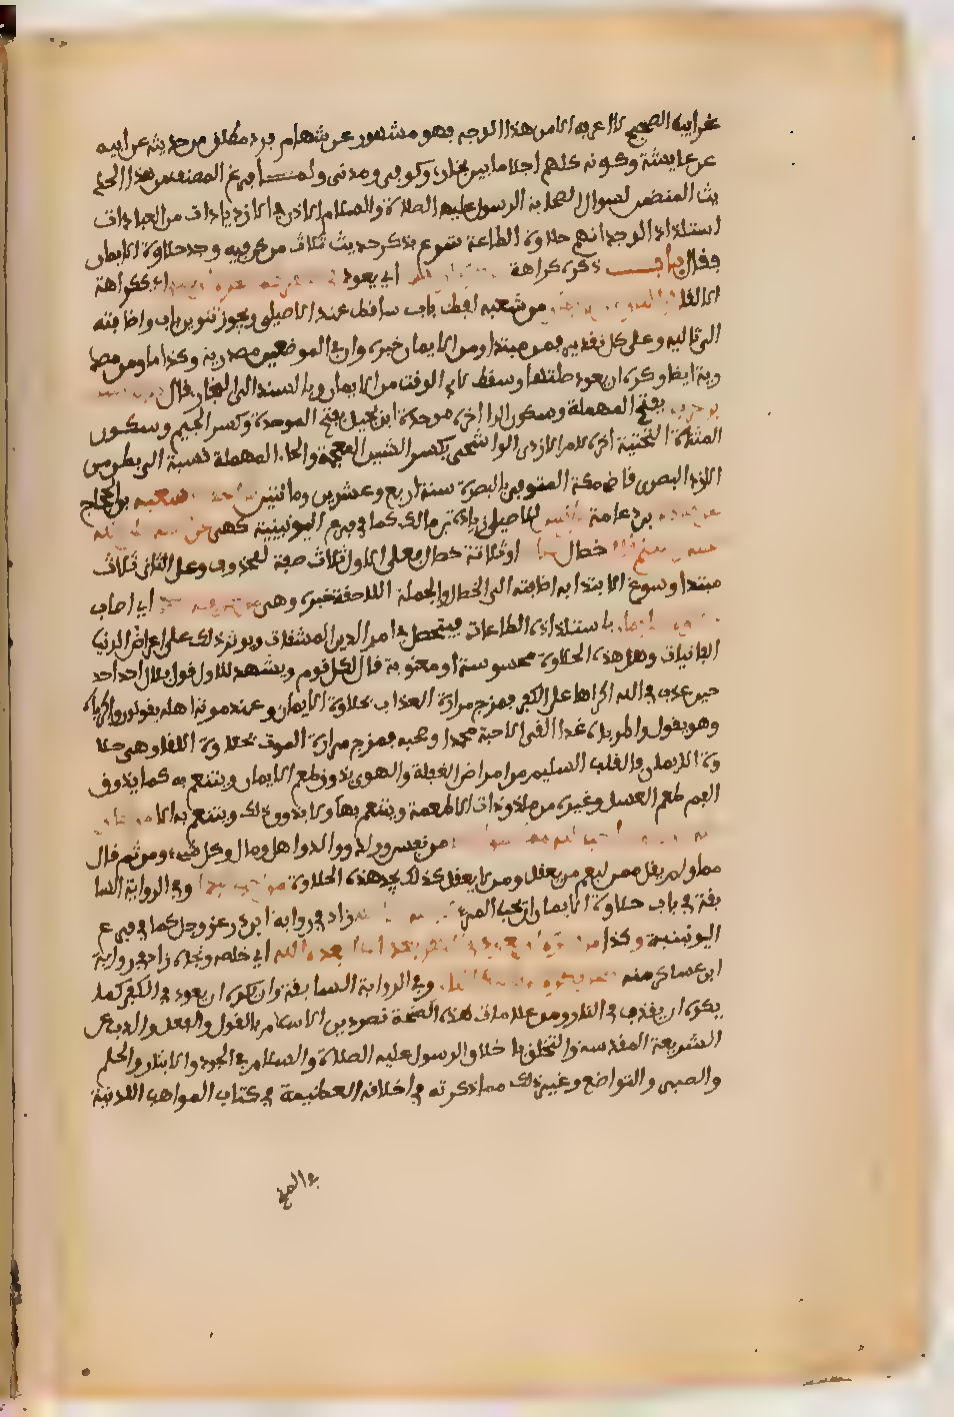 غرايب الصحيح لا اعرفه الا من هذا الوجه فهو مشهور عن هشام فرد مطلق من حديثه عن ابيه
عن عايشة وكونه كلهم اجلاء ما بين بخاري وكوفي ومدني ولما فرغ المصنف من هذا الحد
يث المتضمن لسوال الصحابة الرسول عليه الصلاة والسلام الاذن في الازدياد من العبادات
استلذاذ الوجدانهم حلاوة الطاعة شرع بذكر حديث ثلاث من كن فيه وجد حلاوة الايمان
فقال باب ذكر كراهة اي يعود كراهة
الالقا من شعبه لفظ باب ساقط عند الاصيلي ويجوز تنوين باب واضافته
الى تاليه وعلى كل تقدير فمن مبتدا ومن الايمان خبره وان في الموضعين مصدرية وكذا ما ومن موصو
وكره ان يعود صلتها وسقط لابي الوقت من الايمان وبالسند الى البخاري قال
بن حرب بفتح المهملة وسكون الرا اخره موحدة ابن بجيل بفتح الموحدة وكسر الجيم وسكون
المثناة التحتية اخره لام الازدي الواشحي بكسر الشين المعجمة والحاء المهملة نسبة الى بطن من
الازد البصري قاضي مكة المتوفى بالبصرة سنة اربع وعشرين ومائتين شعبة بن الحجاج
بن دعامة للاصيلي زيادة بن مالك كما في فرع اليونينية كهي
خصال او ثلاثة خصال فعلى الاول ثلاث صفة لمحذوف وعلى الثاني ثلاث
مبتدا وسوغ الابتدا به اضافته الى الخصال والجملة اللاحقة خبره وهي اي اصاب
باستلذاذه الطاعات فيتحمل في امر الدين المشقات ويوثر ذلك على اعراض الدنيا
الفانيات وهل هذه الحلاوة محسوسة او معنوية قال بكل قوم ويشهد للاول قول بلال احد احد
حين عذب في الله اكراها على الكفر فمزج مرارة العذاب بحلاوة الايمان وعند موته اهله يقولون واكرباه
وهو يقول واطرباه غدا القى الاحبه محمدا وصحبه فمزج مرارة الموت بحلاوة اللقا وهي حلا
وة الايمان فالقلب السليم من امراض الغفلة والهوى يذوق طعم الايمان ويتنعم به كما يذوق
الفم طعم العسل وغيره من ملذوذات الاطعمة ويتنعم بها ولا يذوق ذلك ويتنعم به الا
من نفس وولد ووالد واهل ومال وكل شيء ومن ثم قال
مما ولم يقل ممن ليعم من يعقل ومن لا يعقل كذلك يجد هذه الحلاوة وفي الرواية السا
بقة في باب حلاوة الايمان ان يحب المرء زاد في رواية ابي ذر عز وجل كما في فرع
اليونينية وكذا بعد اذ انقذه الله اي خلصه ونجاه زاد في رواية
ابن عساكر منه وفي الرواية السابقة وان يكره ان يعود في الكفر كما
يكره ان يقذف في النار ومن علامات هذه المحبة نصر دين الاسلام بالقول والفعل والذب عن
الشريعة المقدسة والتخلق باخلاق الرسول عليه الصلاة والسلام في الجود والايثار والحلم
والصبر والتواضع وغير ذلك مما ذكرته في اخلاقه العظيمة في كتاب المواهب اللدنية